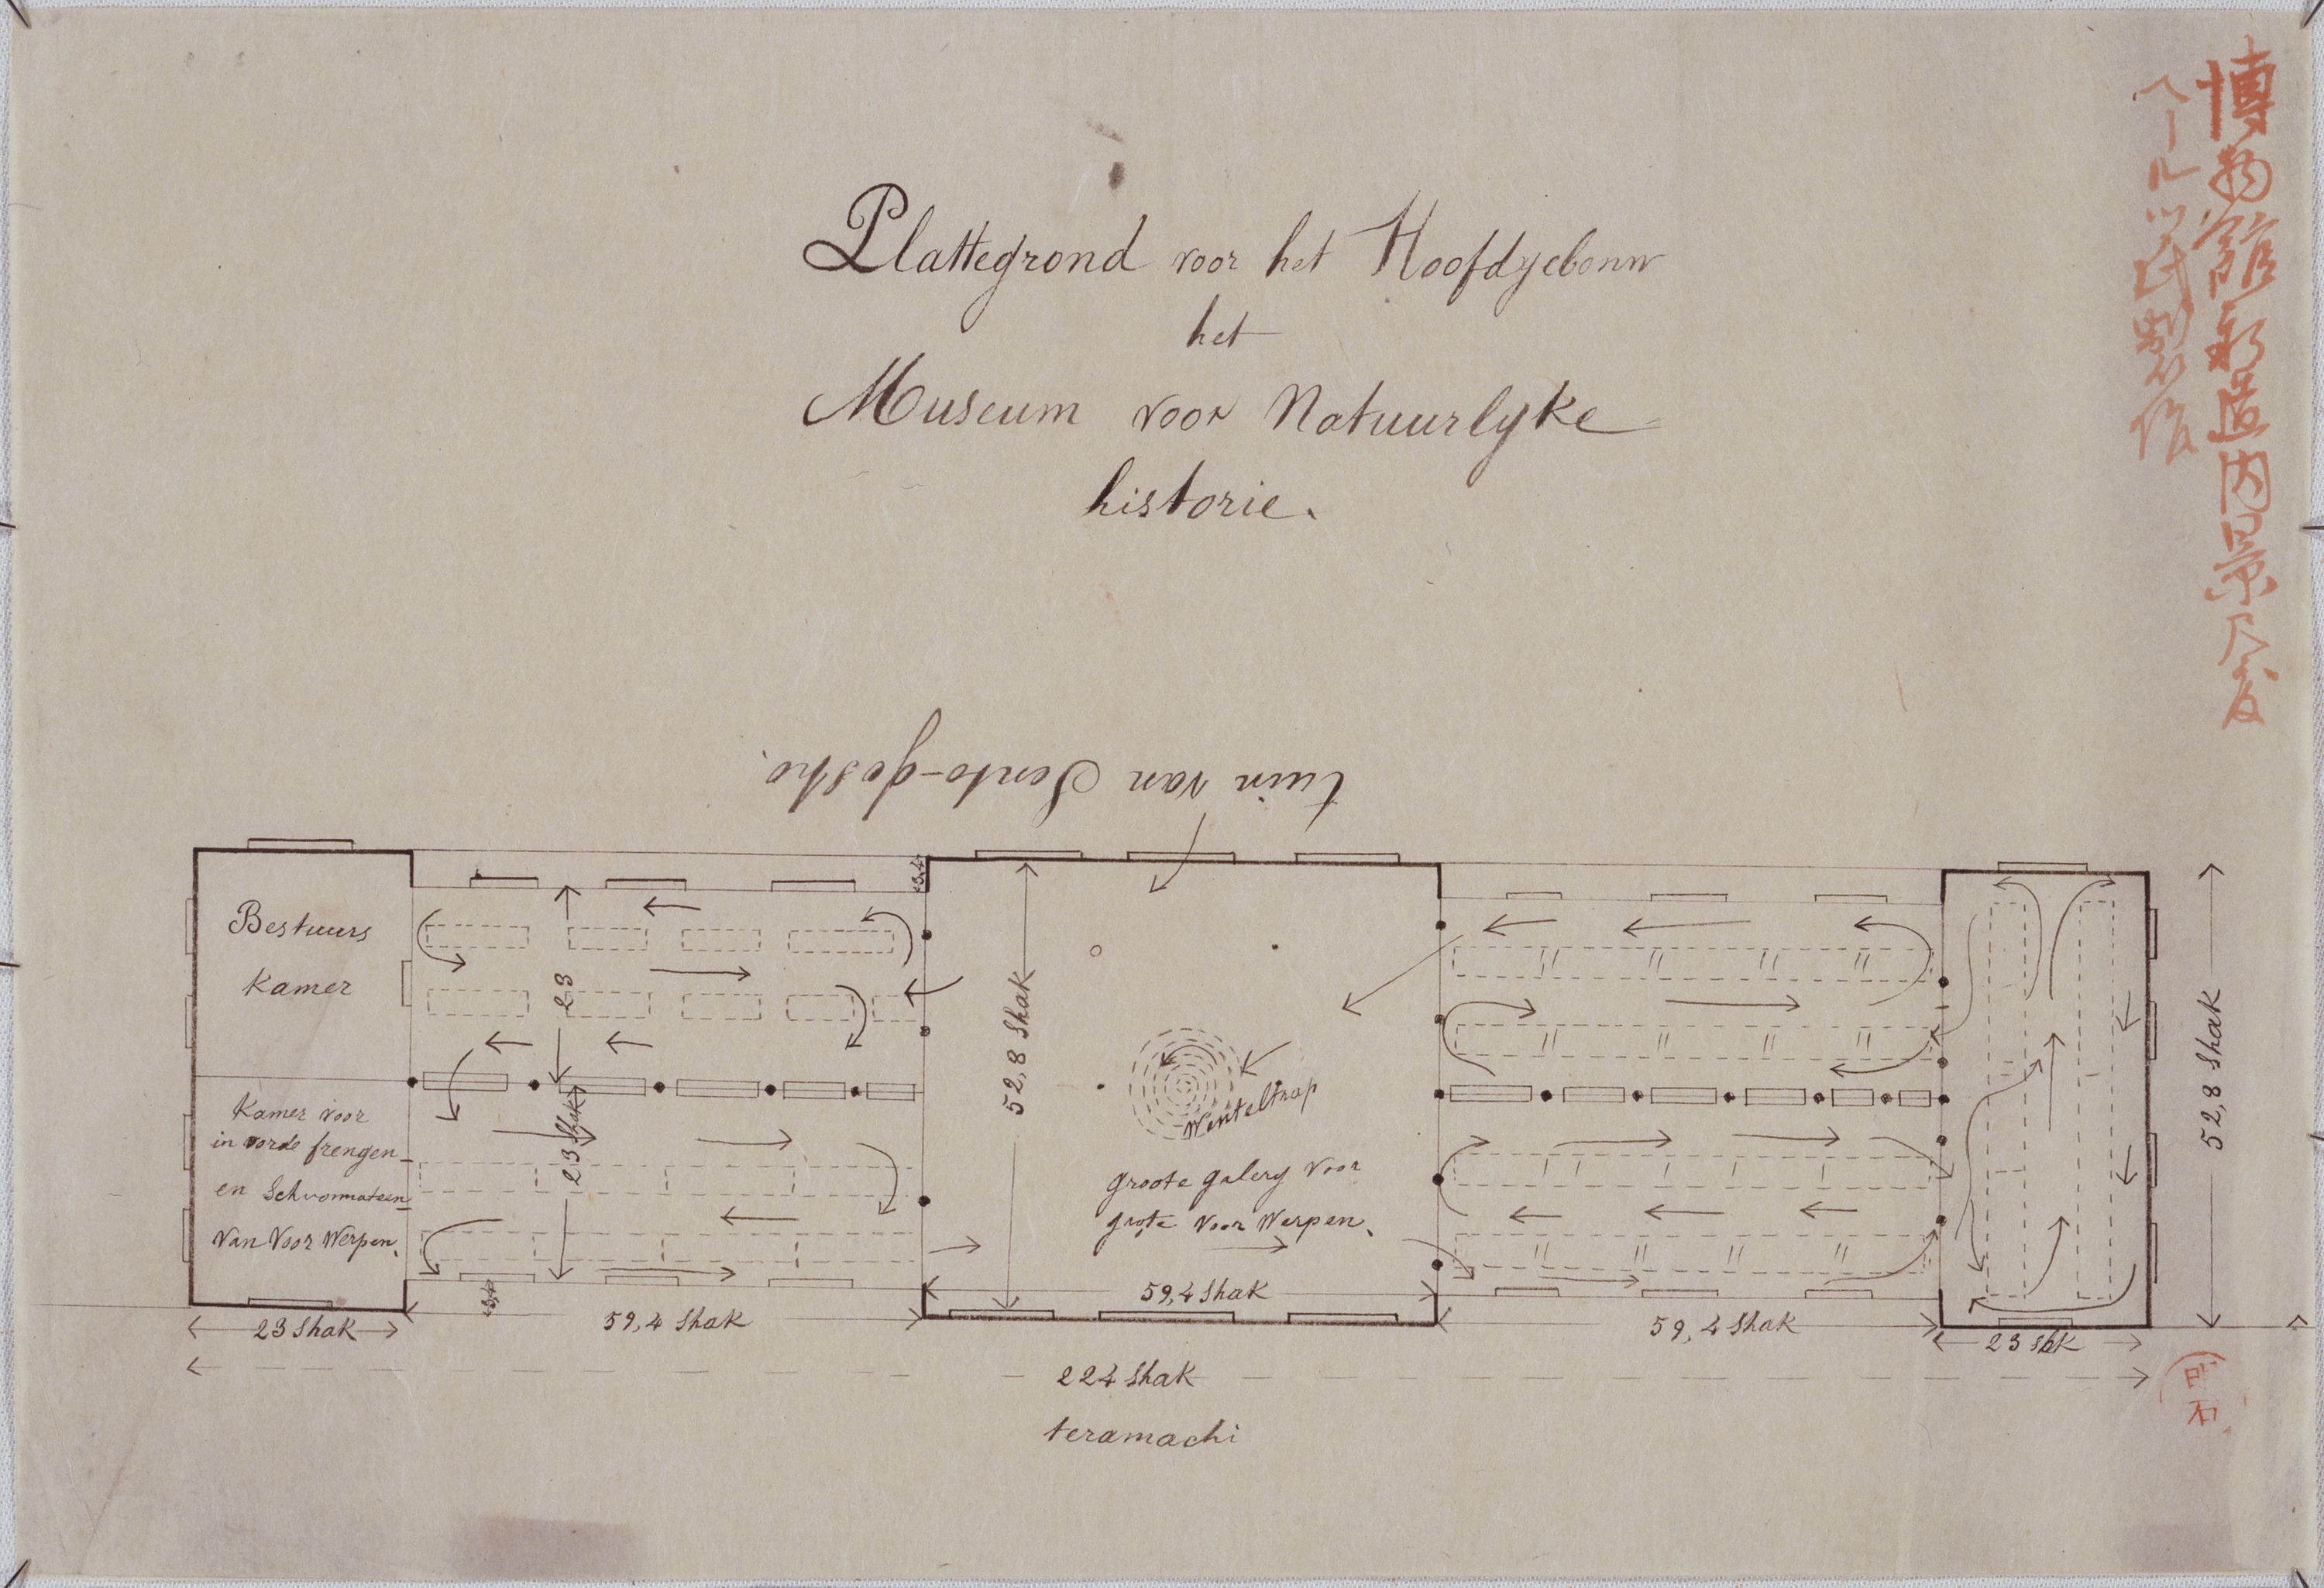 Plattegrond voor het Hoofdgebouw
het
Museum voor Natuurlyke
historie.
博物館新造内景
ヘールツ氏製作
tuin van Sento-gosho.
Bestuurs
Kamer
Kamer voor
in
en
van Voor Werpen.
3,4
23
23 Shak
3,4
52,8 Shak
Wenteltrap
groote galery voor
grote voor Werpen.
59,4 Shak
52,8 Shak
23 Shak
59,4 Shak
59,4 Shak
23 Shk
224 Shak
teramachi